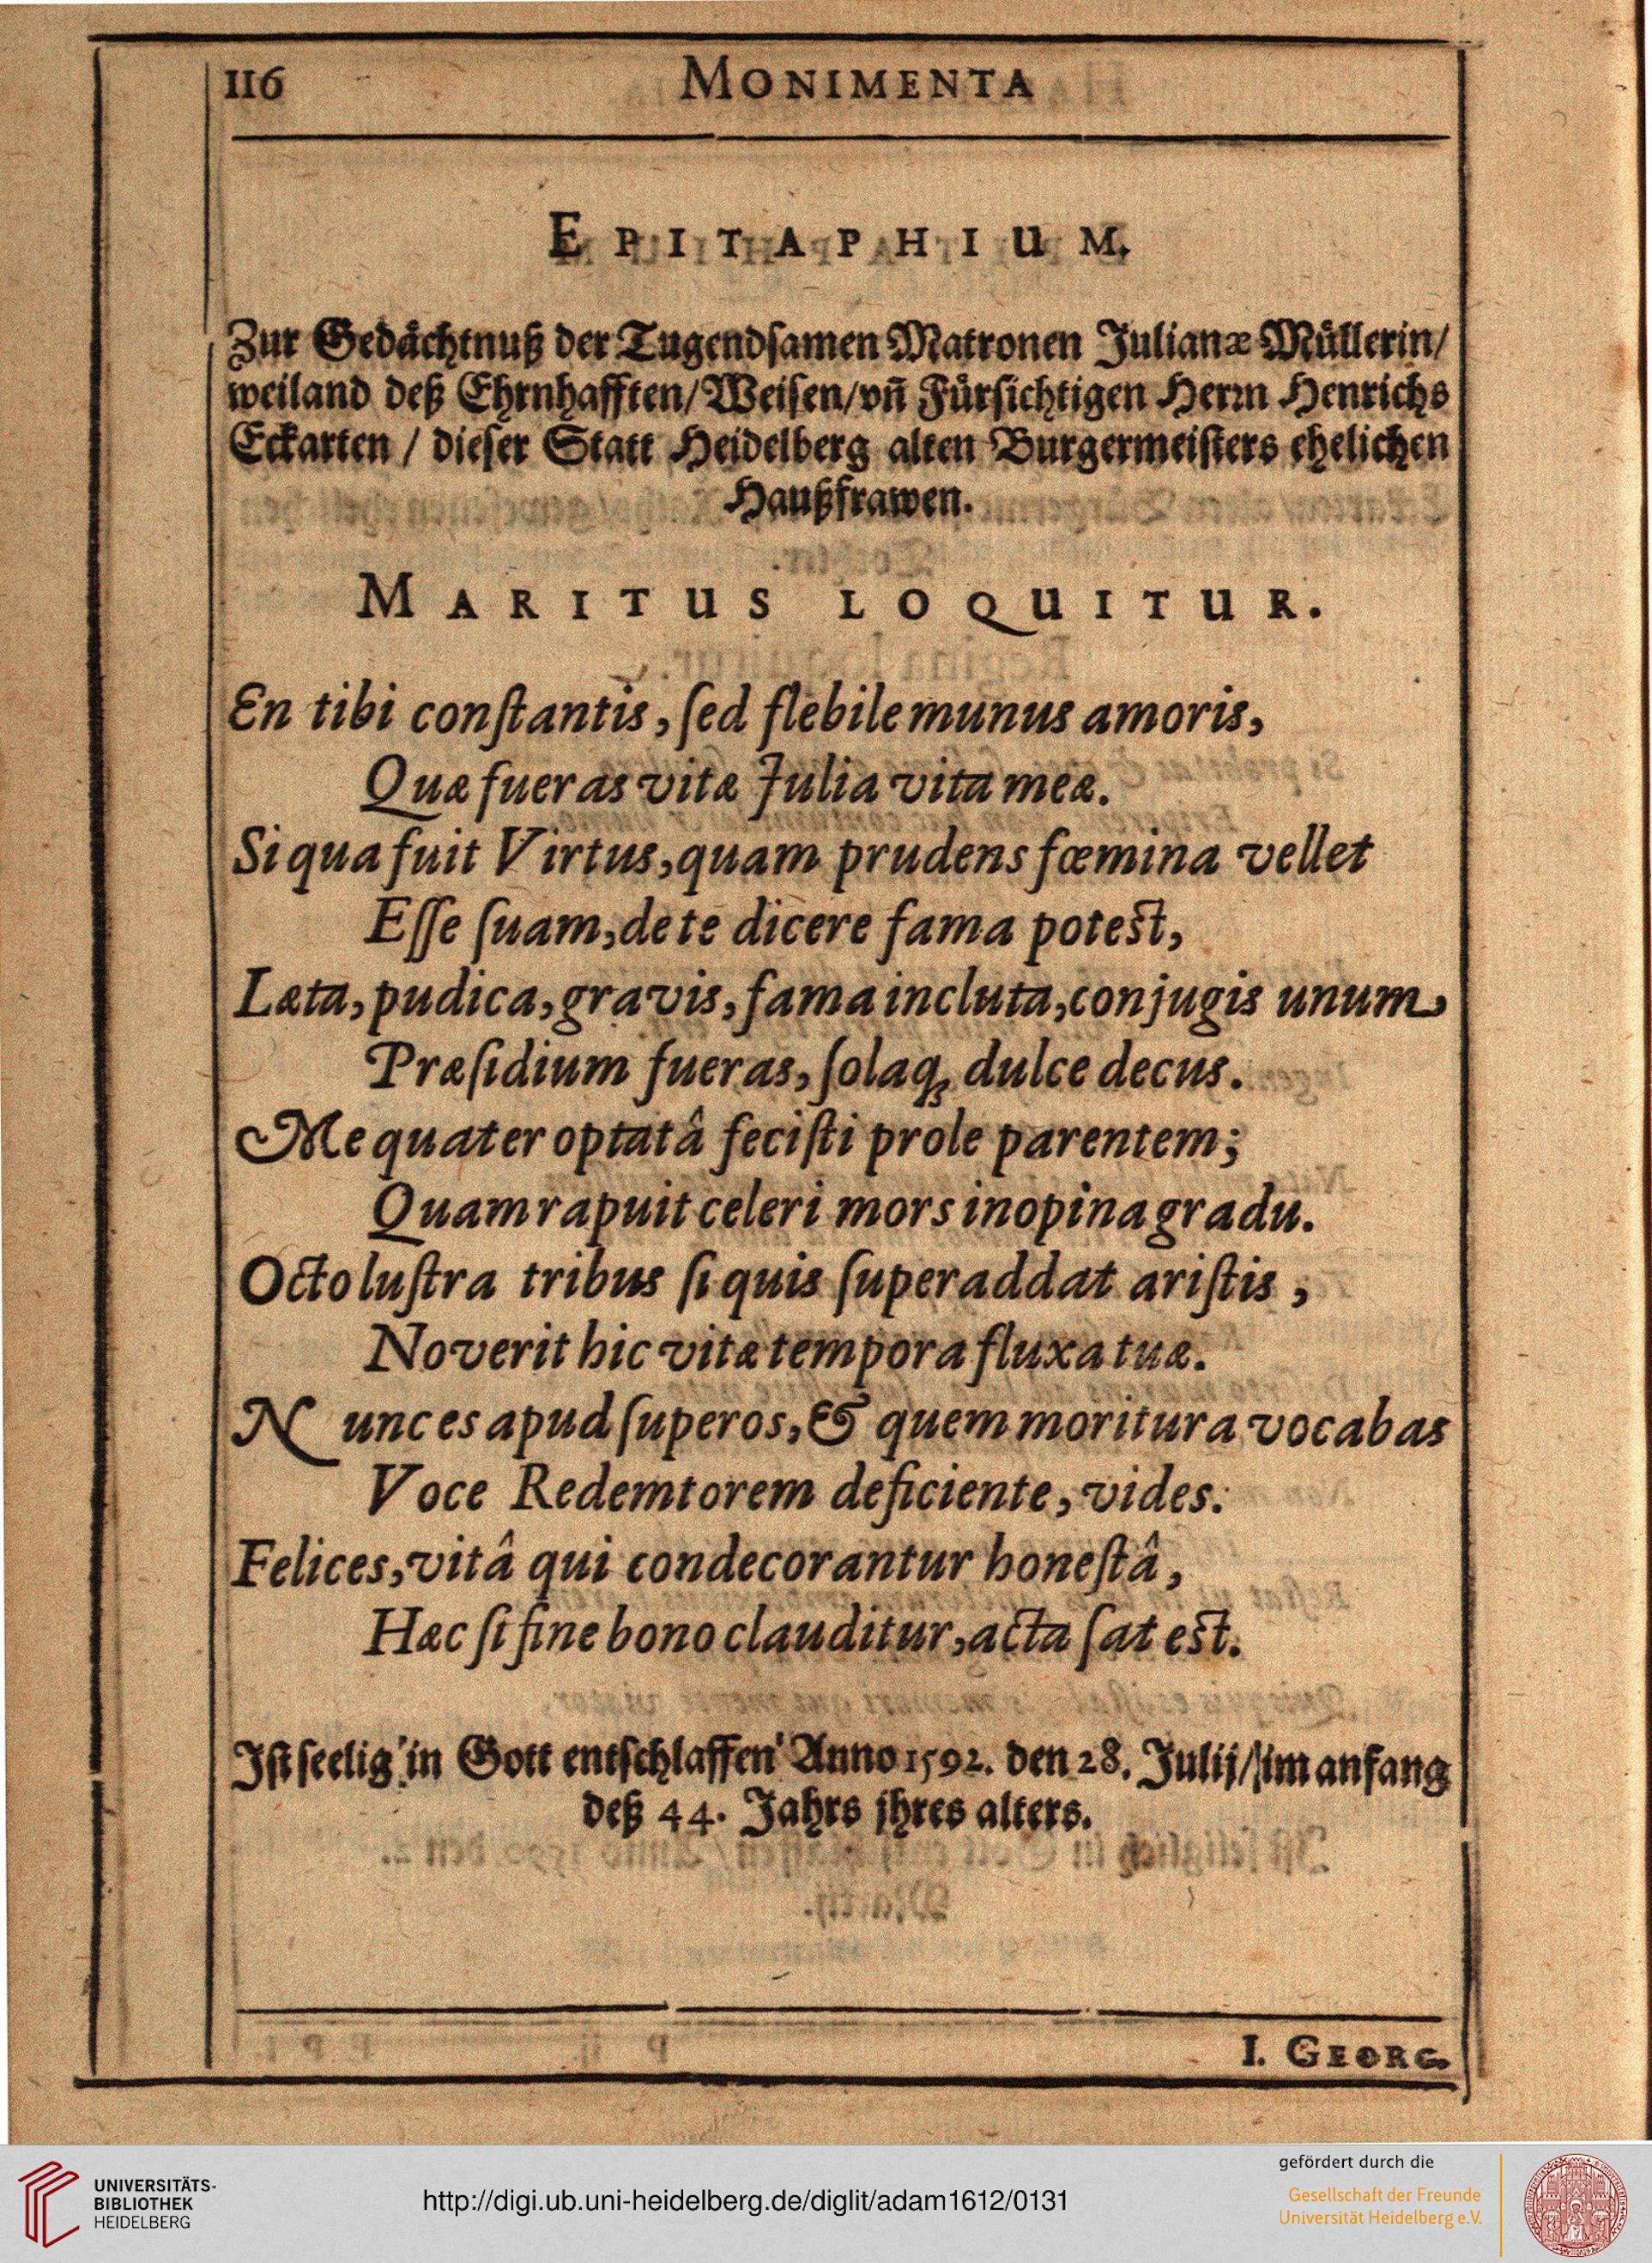 116 MONIMENTA
EPITAPHIUM.
Zur Gedächtnuß der Tugendsamen Matronen Julianæ Müllerin/
weiland deß Ehrnhafften/Weisen/vñ Fürsichtigen Herrn Henrichs
Eckarten / dieser Statt Heidelberg alten Burgermeisters ehelichen
Haußfrawen.
MARITUS LOQUITUR.
En tibi conſtantis, ſed flebile munus amoris,
Quæ fueras vitæ Julia vita meæ.
Si qua fuit Virtus, quam prudens fœmina vellet
Eſſe ſuam, de te dicere fama poteſt,
Læta, pudica, gravis, fama incluta, conjugis unum
Præſidium fueras, ſolaq; dulce decus.
Me quater optatâ feciſti prole parentem;
Quam rapuit celeri mors inopina gradu.
Octo luſtra tribus ſi quis ſuperaddat ariſtis,
Noverit hic vitæ tempora fluxa tuæ.
Nunc es apud ſuperos, & quem moritura vocabas
Voce Redemtorem deficiente, vides.
Felices, vitâ qui condecorantur honeſtâ,
Hæc ſi fine bono clauditur, acta ſat eſt.
Iſt ſeelig in Gott entſchlaffen Anno 1592. den 28. Julij/ im anfang
deß 44. Jahrs ihres alters.
I. GEORG.
UNIVERSITÄTS-
BIBLIOTHEK
HEIDELBERG
http://digi.ub.uni-heidelberg.de/diglit/adam1612/0131
gefördert durch die
Gesellschaft der Freunde
Universität Heidelberg e.V.